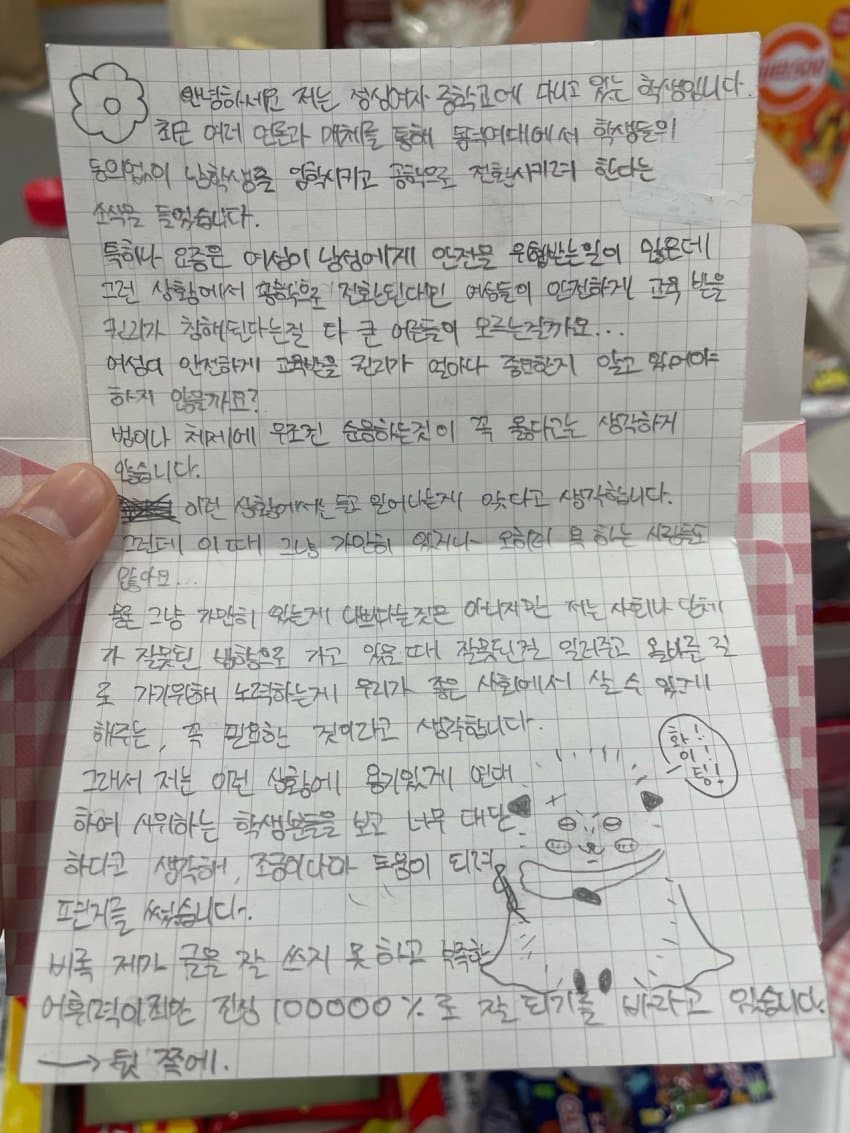 안녕하세요 저는 정심여자 중학교에 다니고 있는 학생입니다.
최근 여러 언론과 매체를 통해 동덕여대에서 학생들의
동의없이 남학생을 입학시키고 공학으로 전환시키려 한다는
소식을 들었습니다.
특히나 요즘은 여성이 남성에게 안전을 위협받는일이 많은데
그런 상황에서 공학으로 전환된다면 여성들의 안전하게 교육 받을
권리가 침해된다는걸 다 큰 어른들이 모르는걸까요...
여성의 안전하게 교육받을 권리가 얼마나 중요한지 알고 있어야
하지 않을까요?
법이나 체제에 무조건 순응하는것이 꼭 옳다고는 생각하지
않습니다.
이런 상황에서는 들고 일어나는게 맞다고 생각합니다.
그런데 이때 그냥 가만히 있거나 오히려 욕 하는 사람들도
많아요...
물론 그냥 가만히 있는게 나쁘다는것은 아니지만 저는 사회나 단체
가 잘못된 방향으로 가고 있을때 잘못된걸 일러주고 올바를 길
로 가기위해 노력하는게 우리가 좋은 사회에서 살 수 있게
해주는, 꼭 필요한 것이라고 생각합니다.
그래서 저는 이런 상황에 용기있게 연대
하여 시위하는 학생분들을 보고 너무 대단
하다고 생각해, 조금이나마 도움이 되려
편지를 썼습니다.
비록 제가 글을 잘 쓰지 못하고 부족한
어휘력이지만 진심 100000%로 잘 되기를 바라고 있습니다.
→ 뒷 쪽에.
화!
이!
팅!